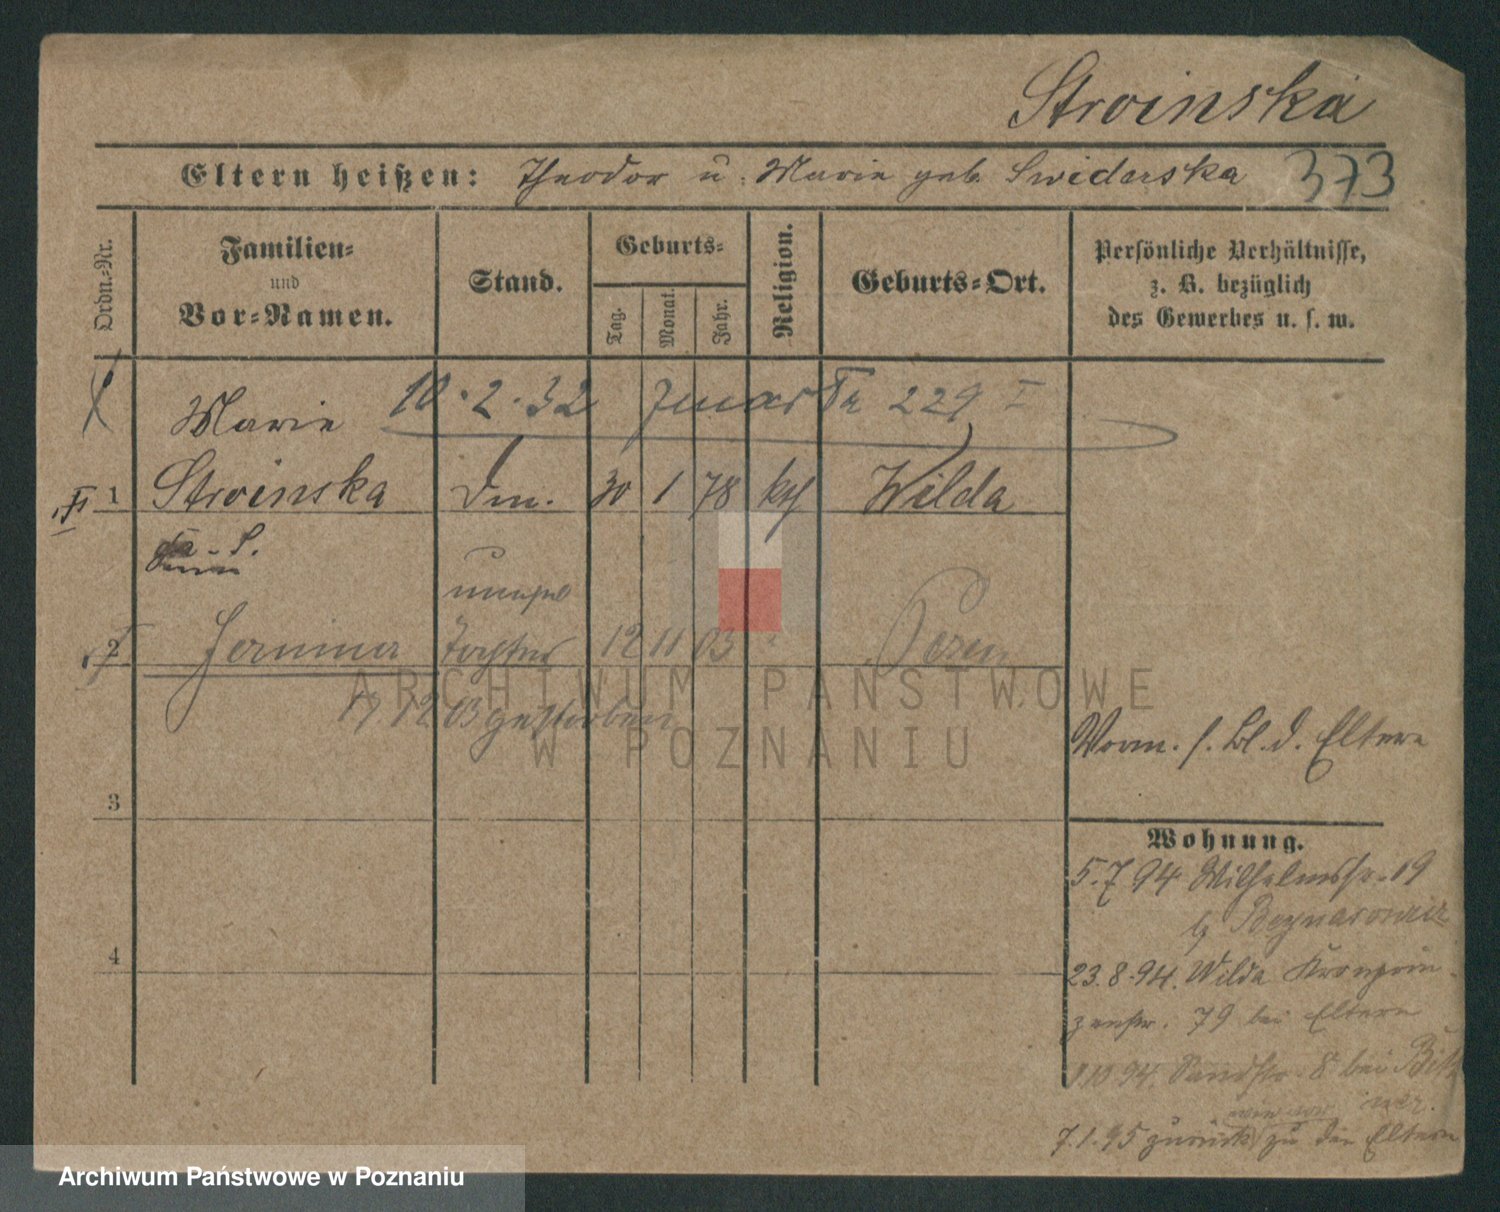 Stroinska
Eltern heißen: Theodor u. Marie geb. Swiderska 373
Ordn.-Nr.
Familien- und Vor-Namen.
Stand.
Geburts-
Tag.
Monat.
Jahr.
Religion.
Geburts-Ort.
Persönliche Verhältnisse,
z. B. bezüglich
des Gewerbes u. s. w.
10.2.32 229 I
Marie
1 Stroinska Dm. 30 1 78 kth Wilda
unehel
2 Janina Tochter 12 11 03 Posen
17.12.03 gestorben
Vorm. s. Bl. d. Eltern
3
Wohnung.
5.7.94 Wilhelmstr. 19
b/
4
23.8.94. Wilda Kronprin-
zenstr. 79 bei Eltern
94. Sandstr. 8 bei
7.1.95 zurück zu den Eltern
ARCHIWUM PAŃSTWOWE
W POZNANIU
Archiwum Państwowe w Poznaniu